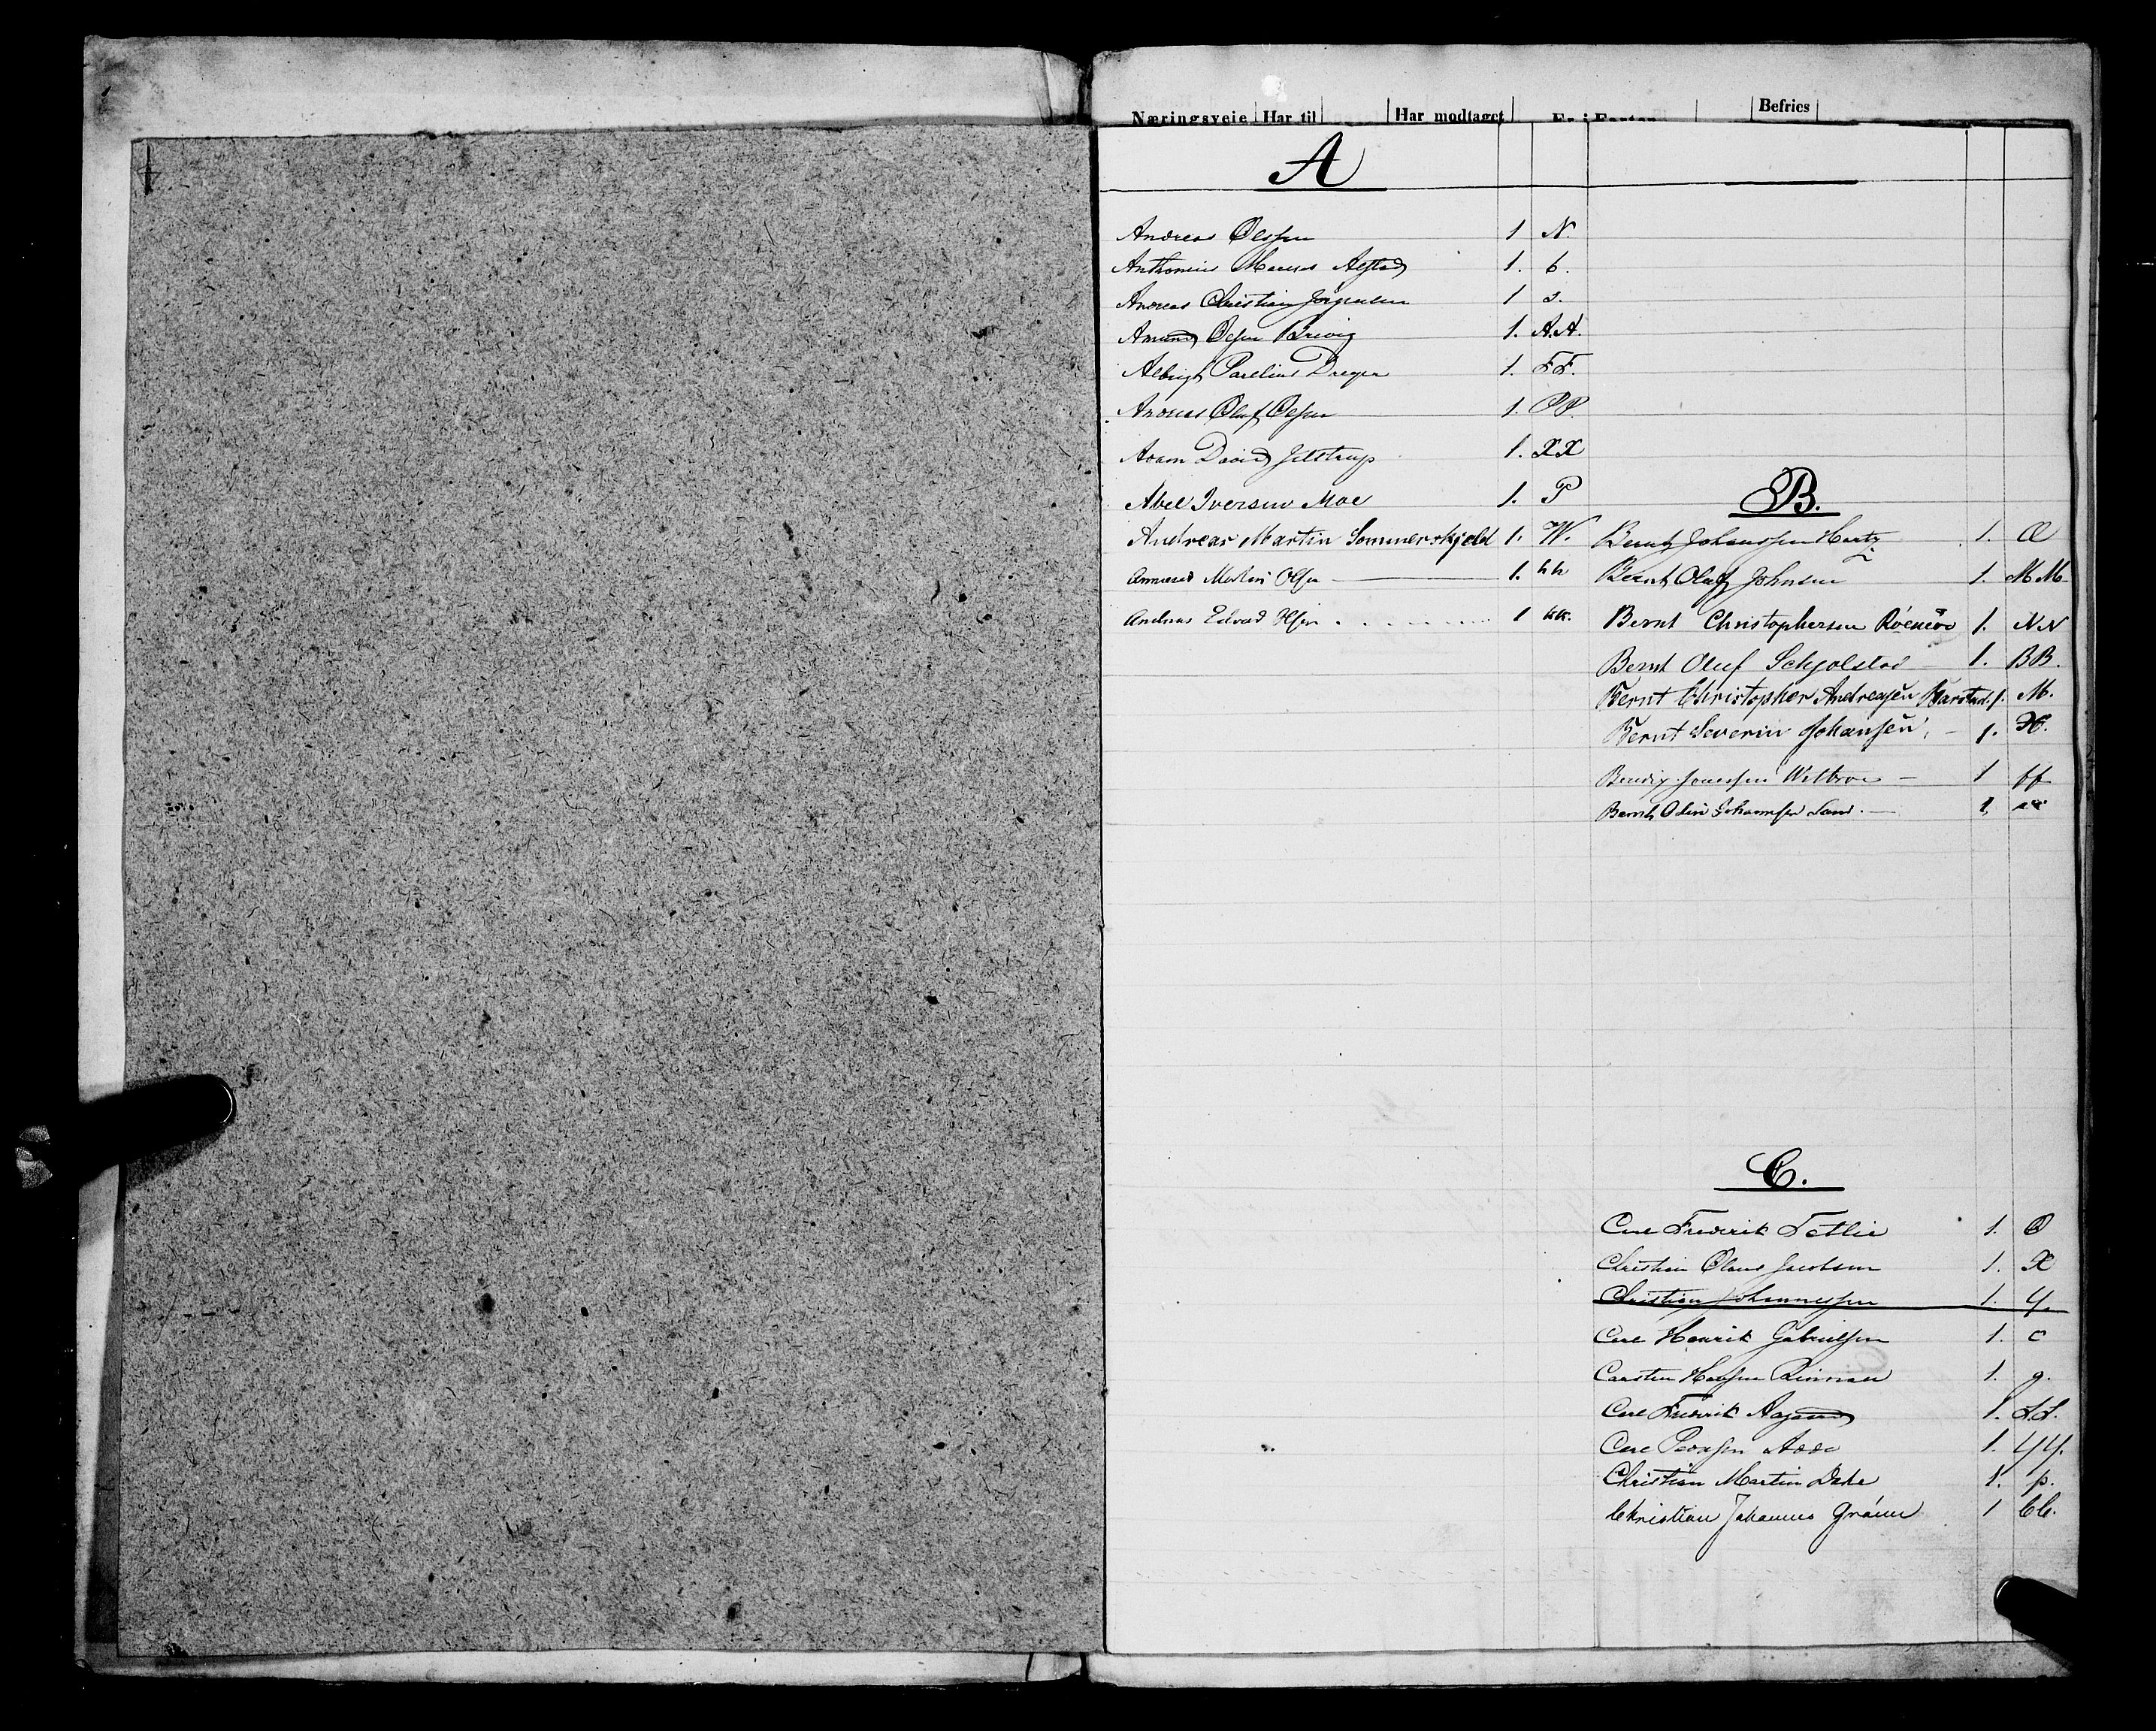 Næringsveie Har til Har modtaget Er i Farten Befries
A
Andreas Olssen 1 N.
Anthonius Marius Alstad 1. b.
Andreas Christian Jörgensen 1 s.
Amund Olsen Brevig 1. A.A.
Albrigt Parelius Dreyer 1. F.F.
Andreas Oluf Olsen 1. P.P.
Adam David Jelstrup 1. X X
Abel Iversen Moe 1. P
Andreas Martin Sommerskjeld 1. W.
Martin Olsen 1. hh
Andreas Edvard Olsen 1 kk.
B.
Bernt Johanssen Hertz 1. Œ
Bernt Oluf Johnsen 1. M M
Bernt Christophersen 1. N N
Bernt Oluf Schjolstad 1. B B.
Bernt Christopher Andreasen Barstad. 1. M.
Bernt Severin Johansen 1. H.
Bendix Jonassen Wiltroe 1 ff
Bernt Odin Johannsen Sand 1,
C.
Carl Frederik Fetlie 1. O
Christian Olaus Jacobsen 1. X
Christian Johannessen 1. Y.
Carl Henrik Gabrielsen 1. c
Carsten Hansen Rinnan 1. g.
Carl Fredrik Aagaard 1. L.L.
Carl Pedersen Aade 1. Y Y.
Christian Martin Dahl 1. p.
Christian Johannes Grönn 1 CC.